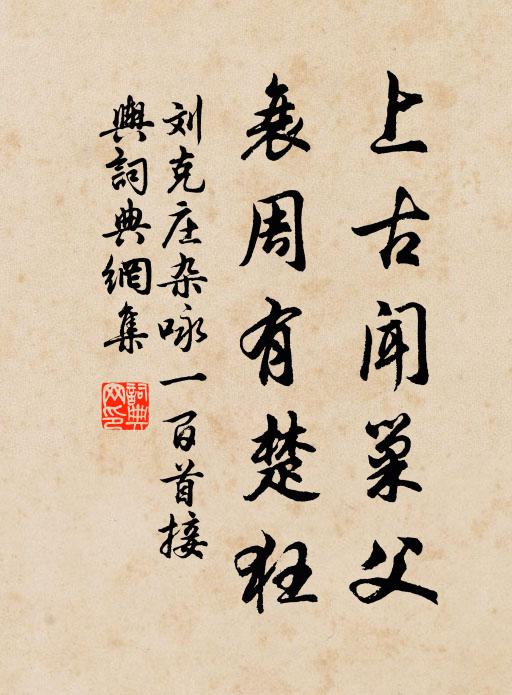 上古闻巢父
衰周有楚狂
刘克庄杂咏一百首接
舆词典網集
詞典网印